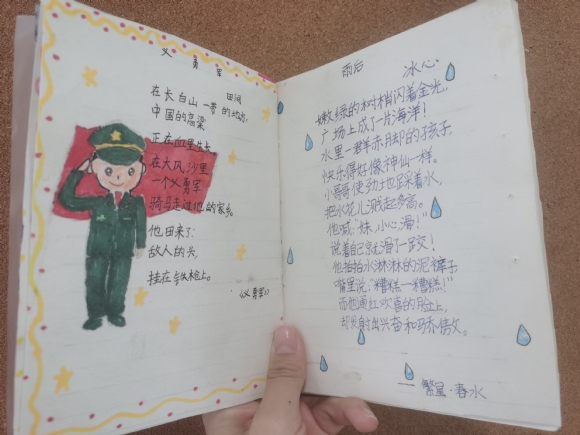 义勇军
田间
在长白山一带的地方,
中国的高粱
正在血里生长。
在大风沙里
一个义勇军
骑马走过他的家乡,
他回来了:
敌人的头,
挂在铁枪上。
《义勇军》
雨后
冰心
嫩绿的树梢闪着金光,
广场上成了一片海洋!
水里一群赤脚的孩子,
快乐得好像神仙一样。
小哥哥使劲地踩着水,
把水花儿溅起多高。
他喊:"妹,小心,滑!"
说着自己就滑了一跤!
他拍拍水淋淋的泥裤子,
嘴里说:"糟糕—糟糕!"
而他通红欢喜的脸上,
却发射出兴奋和骄傲。
— 繁星·春水